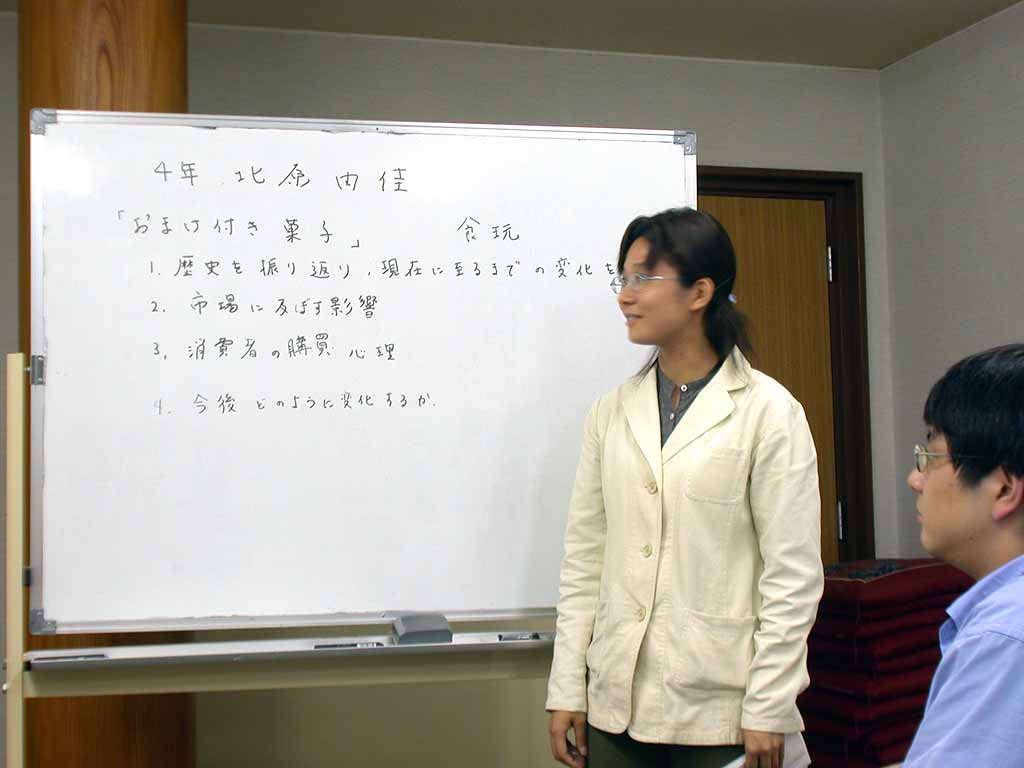 4年 北原由佳
「おまけ付き菓子」 食玩
1. 歴史を振り返り、現在に至るまでの変化を
2. 市場に及ぼす影響
3. 消費者の購買心理
4. 今後どのように変化するか.